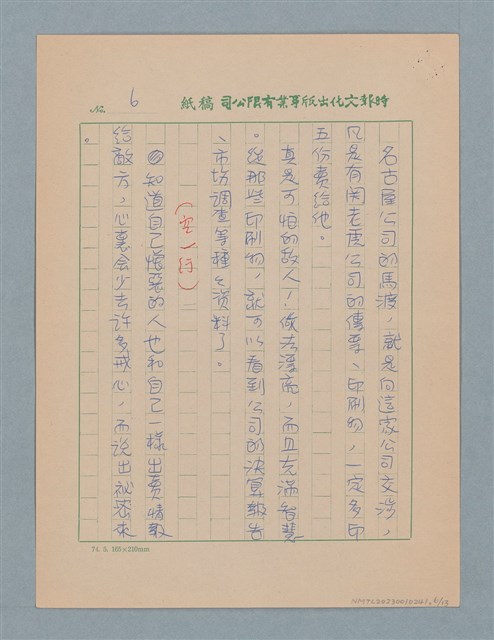 時報文化出版事業有限公司 稿紙
No. 6
名古屋公司的馬渡，就是向這家公司交涉，
凡是有関老虎公司的傳單、印刷物，一定多印
五份賣給他。
真是可怕的敌人！做法漂亮，而且充滿智慧
。從那些印刷物，就可以看到公司的決算報告
、市場調查等種々資料了。
（空一行）
◎知道自己憎惡的人也和自己一樣出賣情報
給敵方，心裏會少去許多戒心，而說出祕密來
。
74. 5. 105×210mm